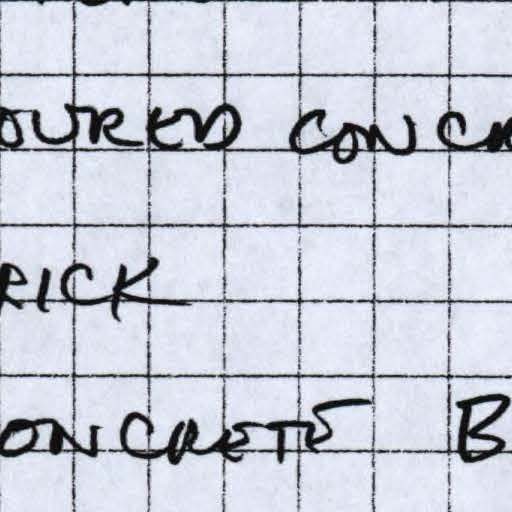 OURED CONCR
RICK
ONCRETE B